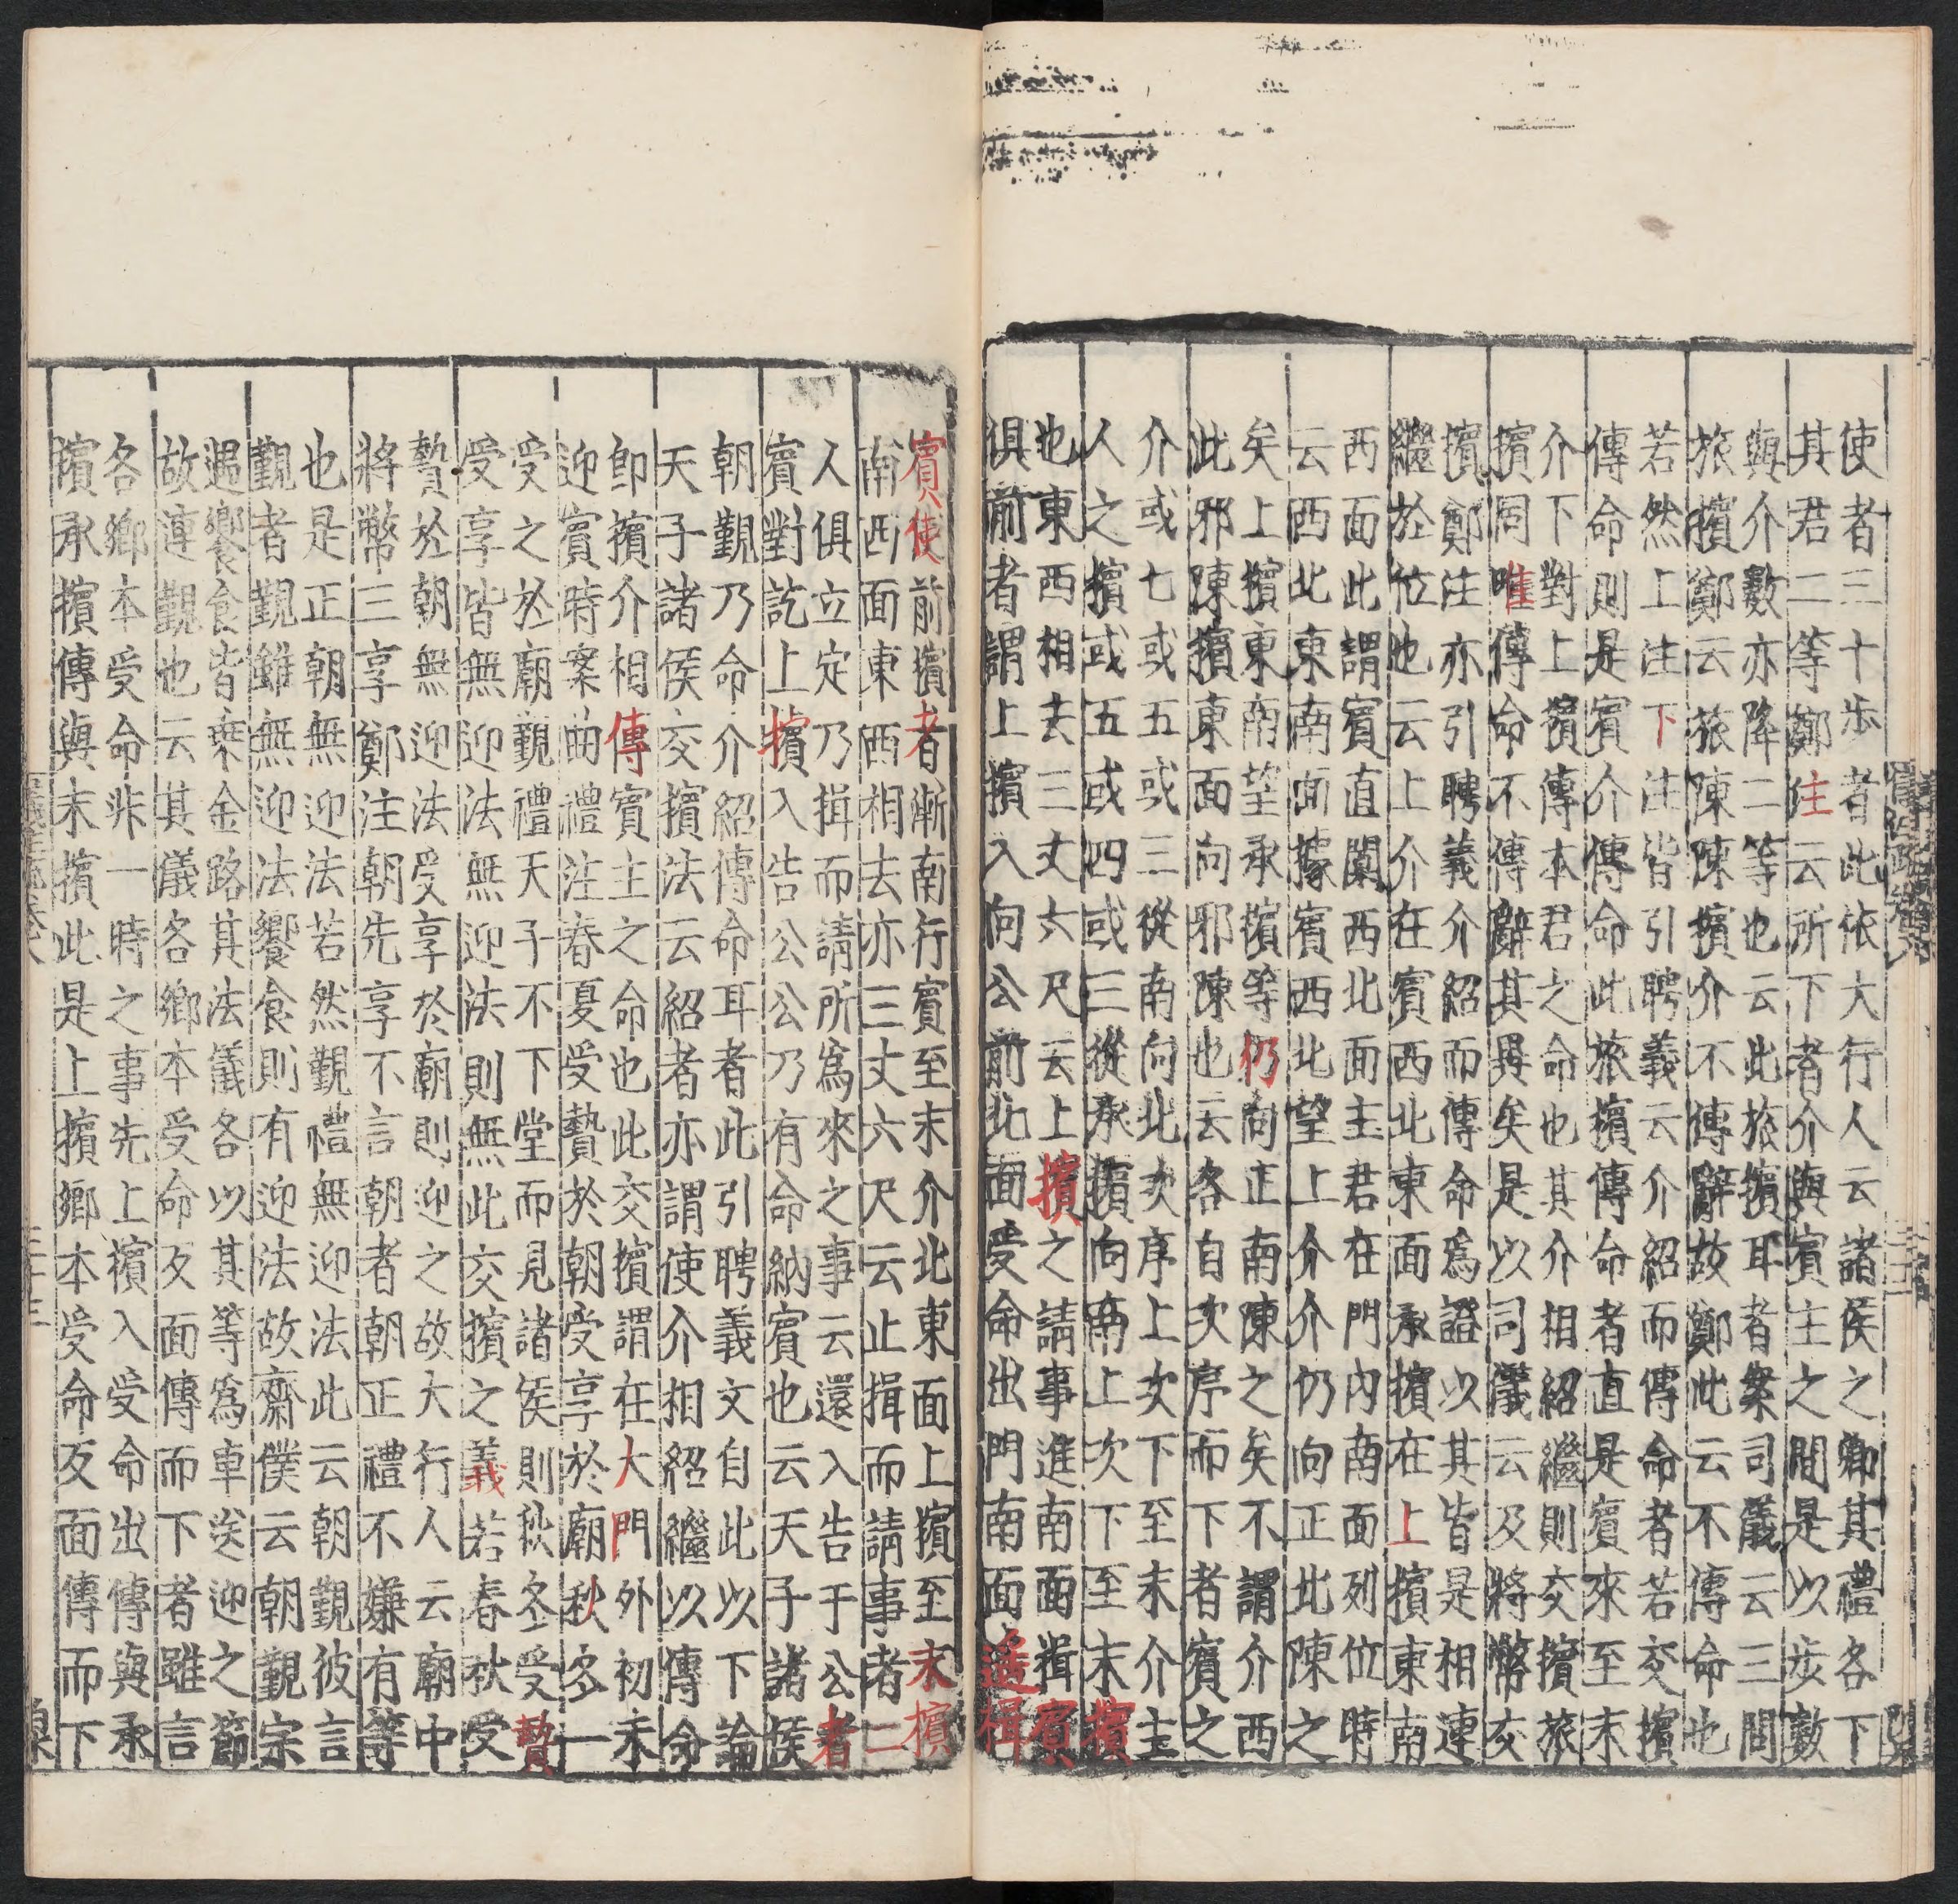 使者三十步者此依大行人云諸侯之卿其禮各下
其君二等鄭注云所下者介與賓主之間是以步數
與介數亦降二等也云此旅擯耳者案司儀云三問
旅擯鄭云旅陳陳擯介不傳辭故鄭此云不傳命也
若然上注下注皆引聘義云介紹而傳命者若交擯
傳命則是賓介傳命此旅擯傳命者直是賓來至末
介下對上擯傳本君之命也其介相紹繼則交擯旅
擯同唯傳命不傳辭其異矣是以司儀云及將幣交
擯鄭注亦引聘義介紹而傳命爲證以其皆是相連
繼於位也云上介在賓西北東面承擯在上擯東南
西面此謂賓直闑西北面主君在門內南面列位時
云西北東南面據賓西北望上介介仍向正北陳之
矣上擯東南望承擯等仍向正南陳之矣不謂介西
此邪陳擯東面向邪陳也云各自次序而下者賓之
介或七或五或三從南向北次序上次下至末介主
人之擯或五或四或三從承擯向南上次下至末擯
也東西相去三丈六尺云上擯之請事進南面揖賓
俱前者謂上擯入向公前北面受命出門南面遥揖
賓使前擯者漸南行賓至末介北東面上擯至末擯
南西面東西相去亦三丈六尺云止揖而請事者二
人俱立定乃揖而請所爲來之事云還入告于公者
賓對訖上擯入告公公乃有命納賓也云天子諸侯
朝覲乃命介紹傳命耳者此引聘義文自此以下論
天子諸侯交擯法云紹者亦謂使介相紹繼以傳命
即擯介相傳賓主之命也此交擯謂在大門外初未
迎賓時案曲禮注春夏受贄於朝受享於廟秋冬一
受之於廟覲禮天子不下堂而見諸侯則秋冬受贄
受享皆無迎法無迎法則無此交擯之義若春秋受
贄於朝無迎法受享於廟則迎之故大行人云廟中
將幣三享鄭注朝先享不言朝者朝正禮不嫌有等
也是正朝無迎法若然覲禮無迎法此云朝覲彼言
覲者覲雖無迎法饗食則有迎法故齋僕云朝覲宗
遇饗食皆乘金路其法儀各以其等爲車送迎之節
故連覲也云其儀各鄉本受命反面傳而下者雖言
各鄉本受命非一時之事先上擯入受命出傳與承
擯承擯傳與末擯此是上擯鄉本受命反面傳而下